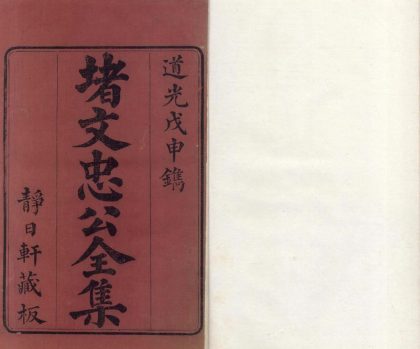 道光戊申鐫
堵文忠公全集
靜日軒藏板